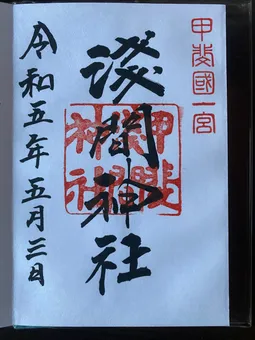 甲斐國一宮
淺間神社
令和五年五月三日